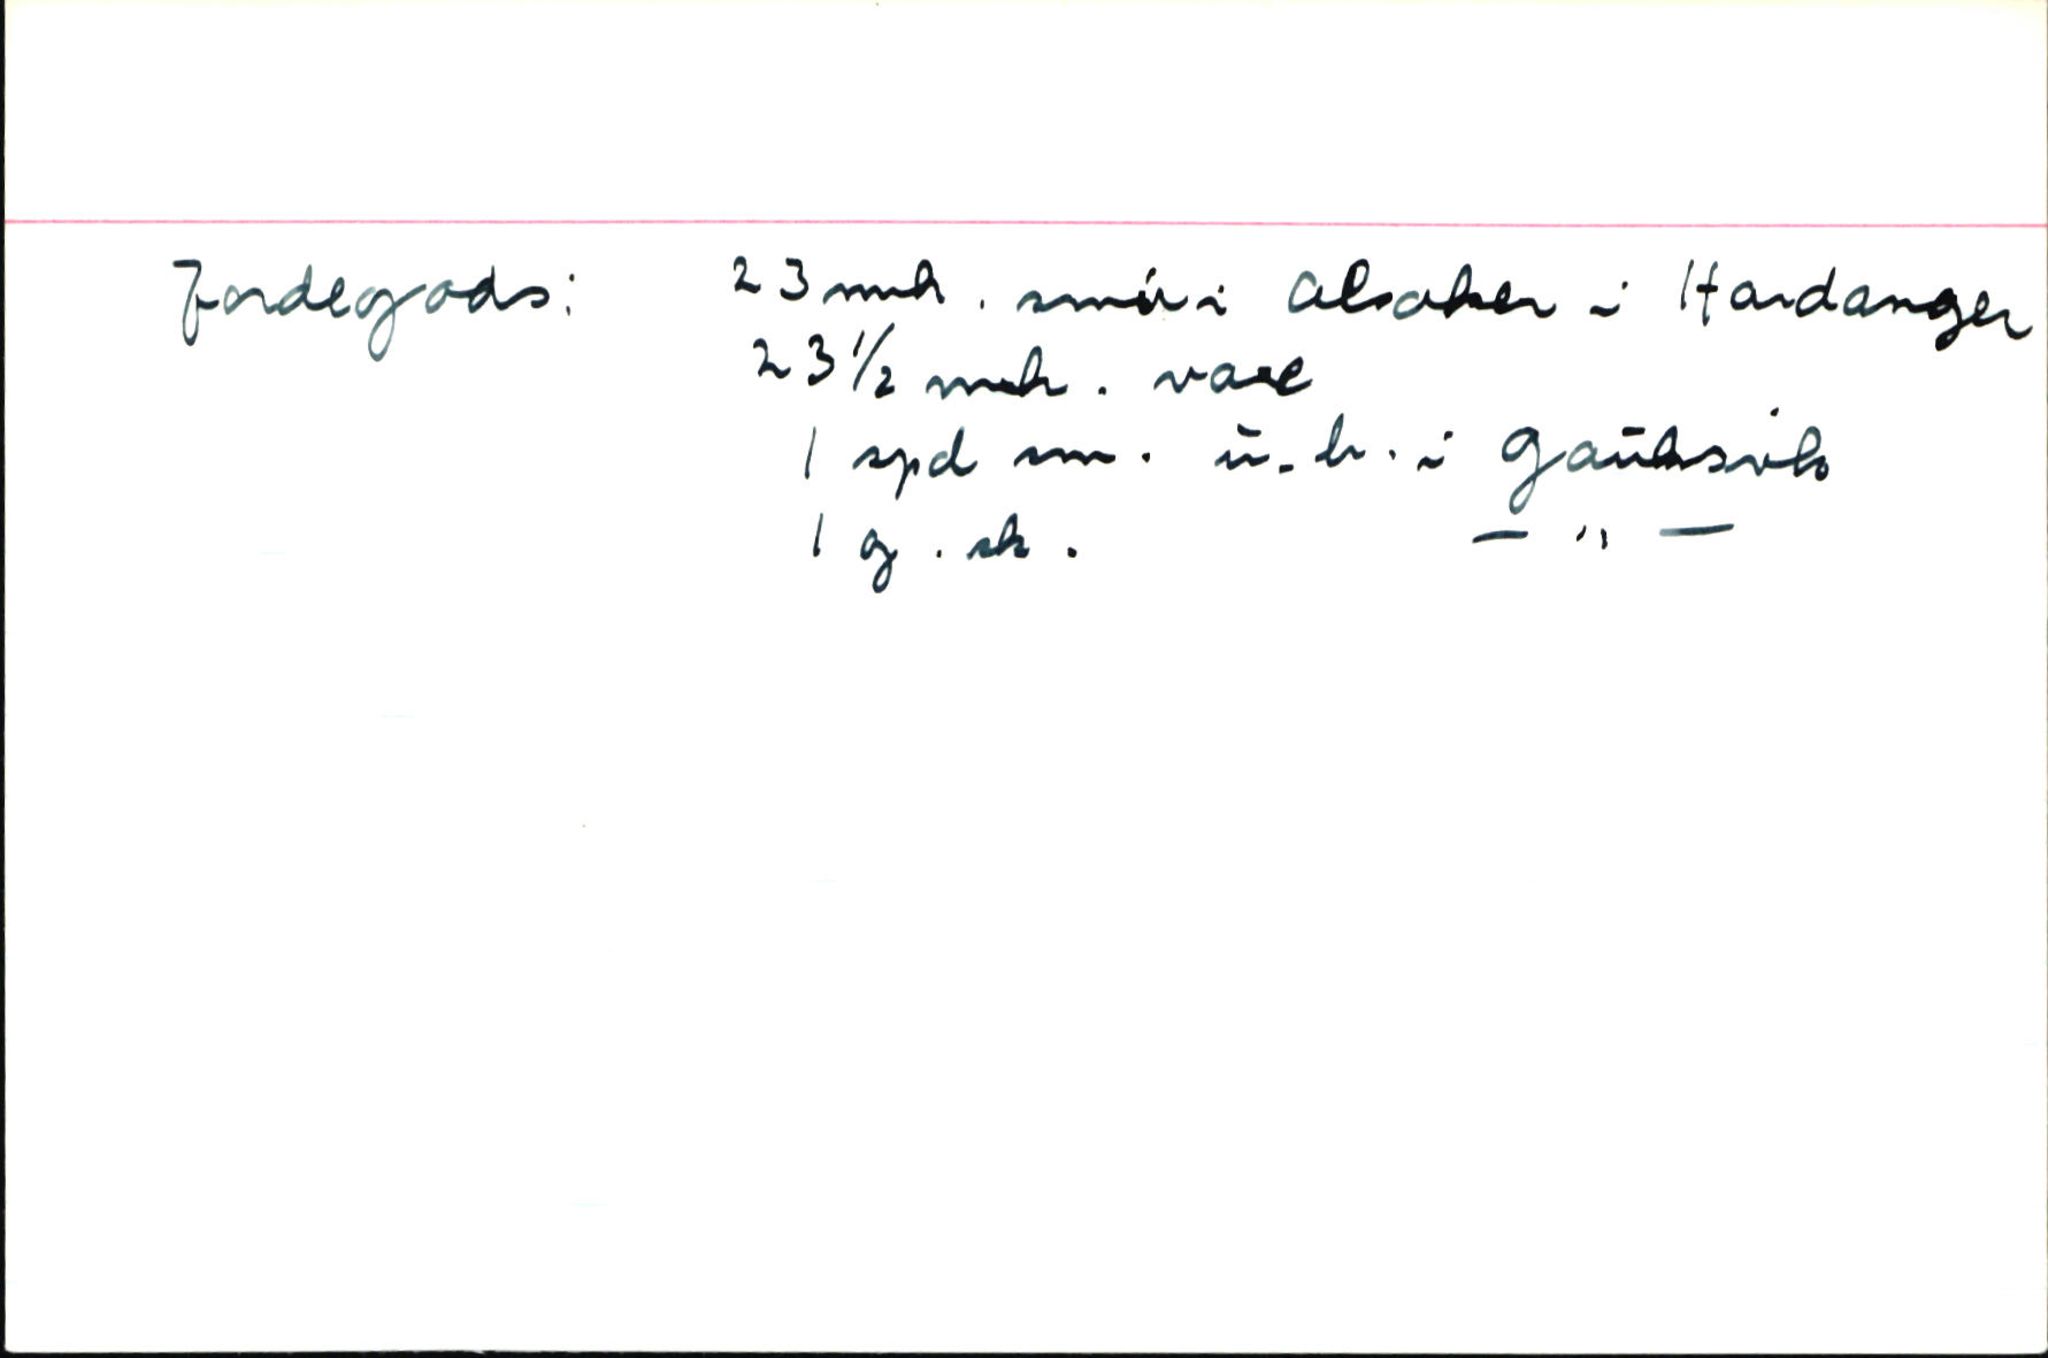 Jordegods: 23 mrk. smør i Alsaker i Hardanger
23 1/2 mrk. voxe
1 spd sm. u. b. i Gauksvik
1 g. sk. — " —